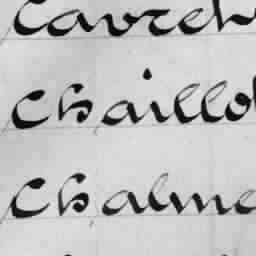 Cavreh
Chaillo
Chalme